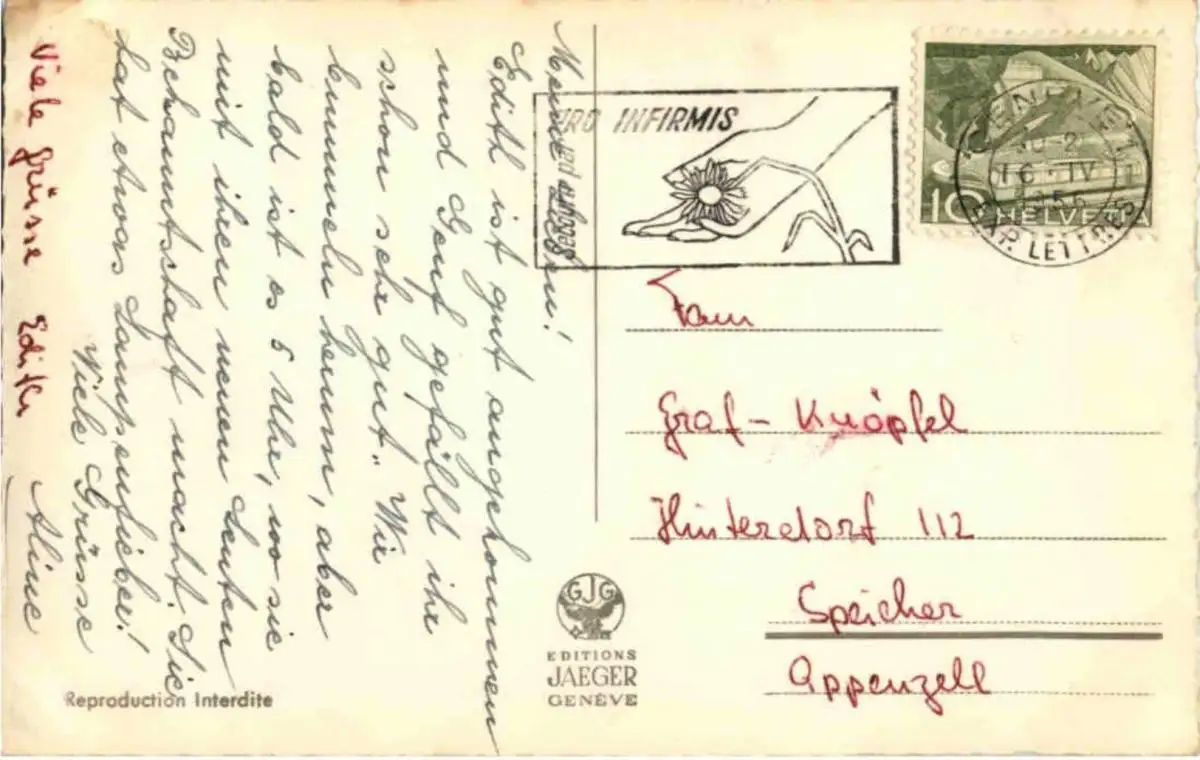 Meine Lieben!
Edith ist gut angekommen
und Genf gefällt ihr
schon sehr gut. Wir
bummeln herum, aber
bald ist es 5 Uhr, wo sie
mit ihren neuen Leuten
Bekanntschaft macht. Sie
hat etwas Lampenfieber!
Viele Grüsse
Aline
Viele Grüsse Edith
PRO INFIRMIS
GENEVE 1
16. IV
1956
EXP. LETTRES
10 HELVETIA
Frau
Graf - Knöpfel
Hinterdorf 112
Speicher
Appenzell
GJG
EDITIONS
JAEGER
GENÈVE
Reproduction Interdite